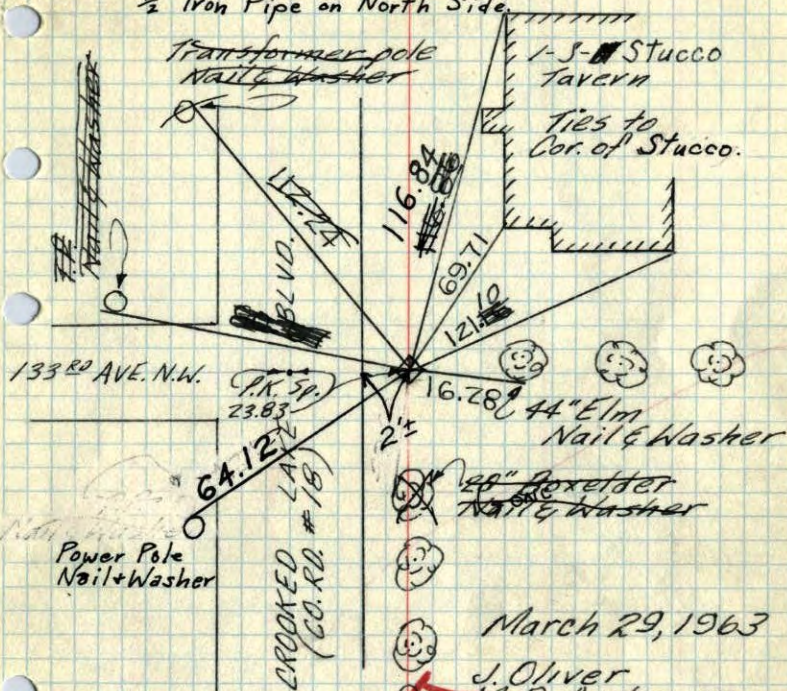 ½ Iron Pipe on North Side.
Transformer pole
Nail & Washer
1-S- Stucco
Tavern
Ties to
Cor. of Stucco.
Nail & Washer
112.24
116.84
69.71
121.10
BLVD.
133RD AVE. N.W.
P.K. Sp.
23.83
2'±
16.28
44" Elm
Nail & Washer
64.12
Boxelder
Nail & Washer
Power Pole
Nail + Washer
CROOKED LAKE
(CO. RD. #18)
March 29, 1963
J. Oliver